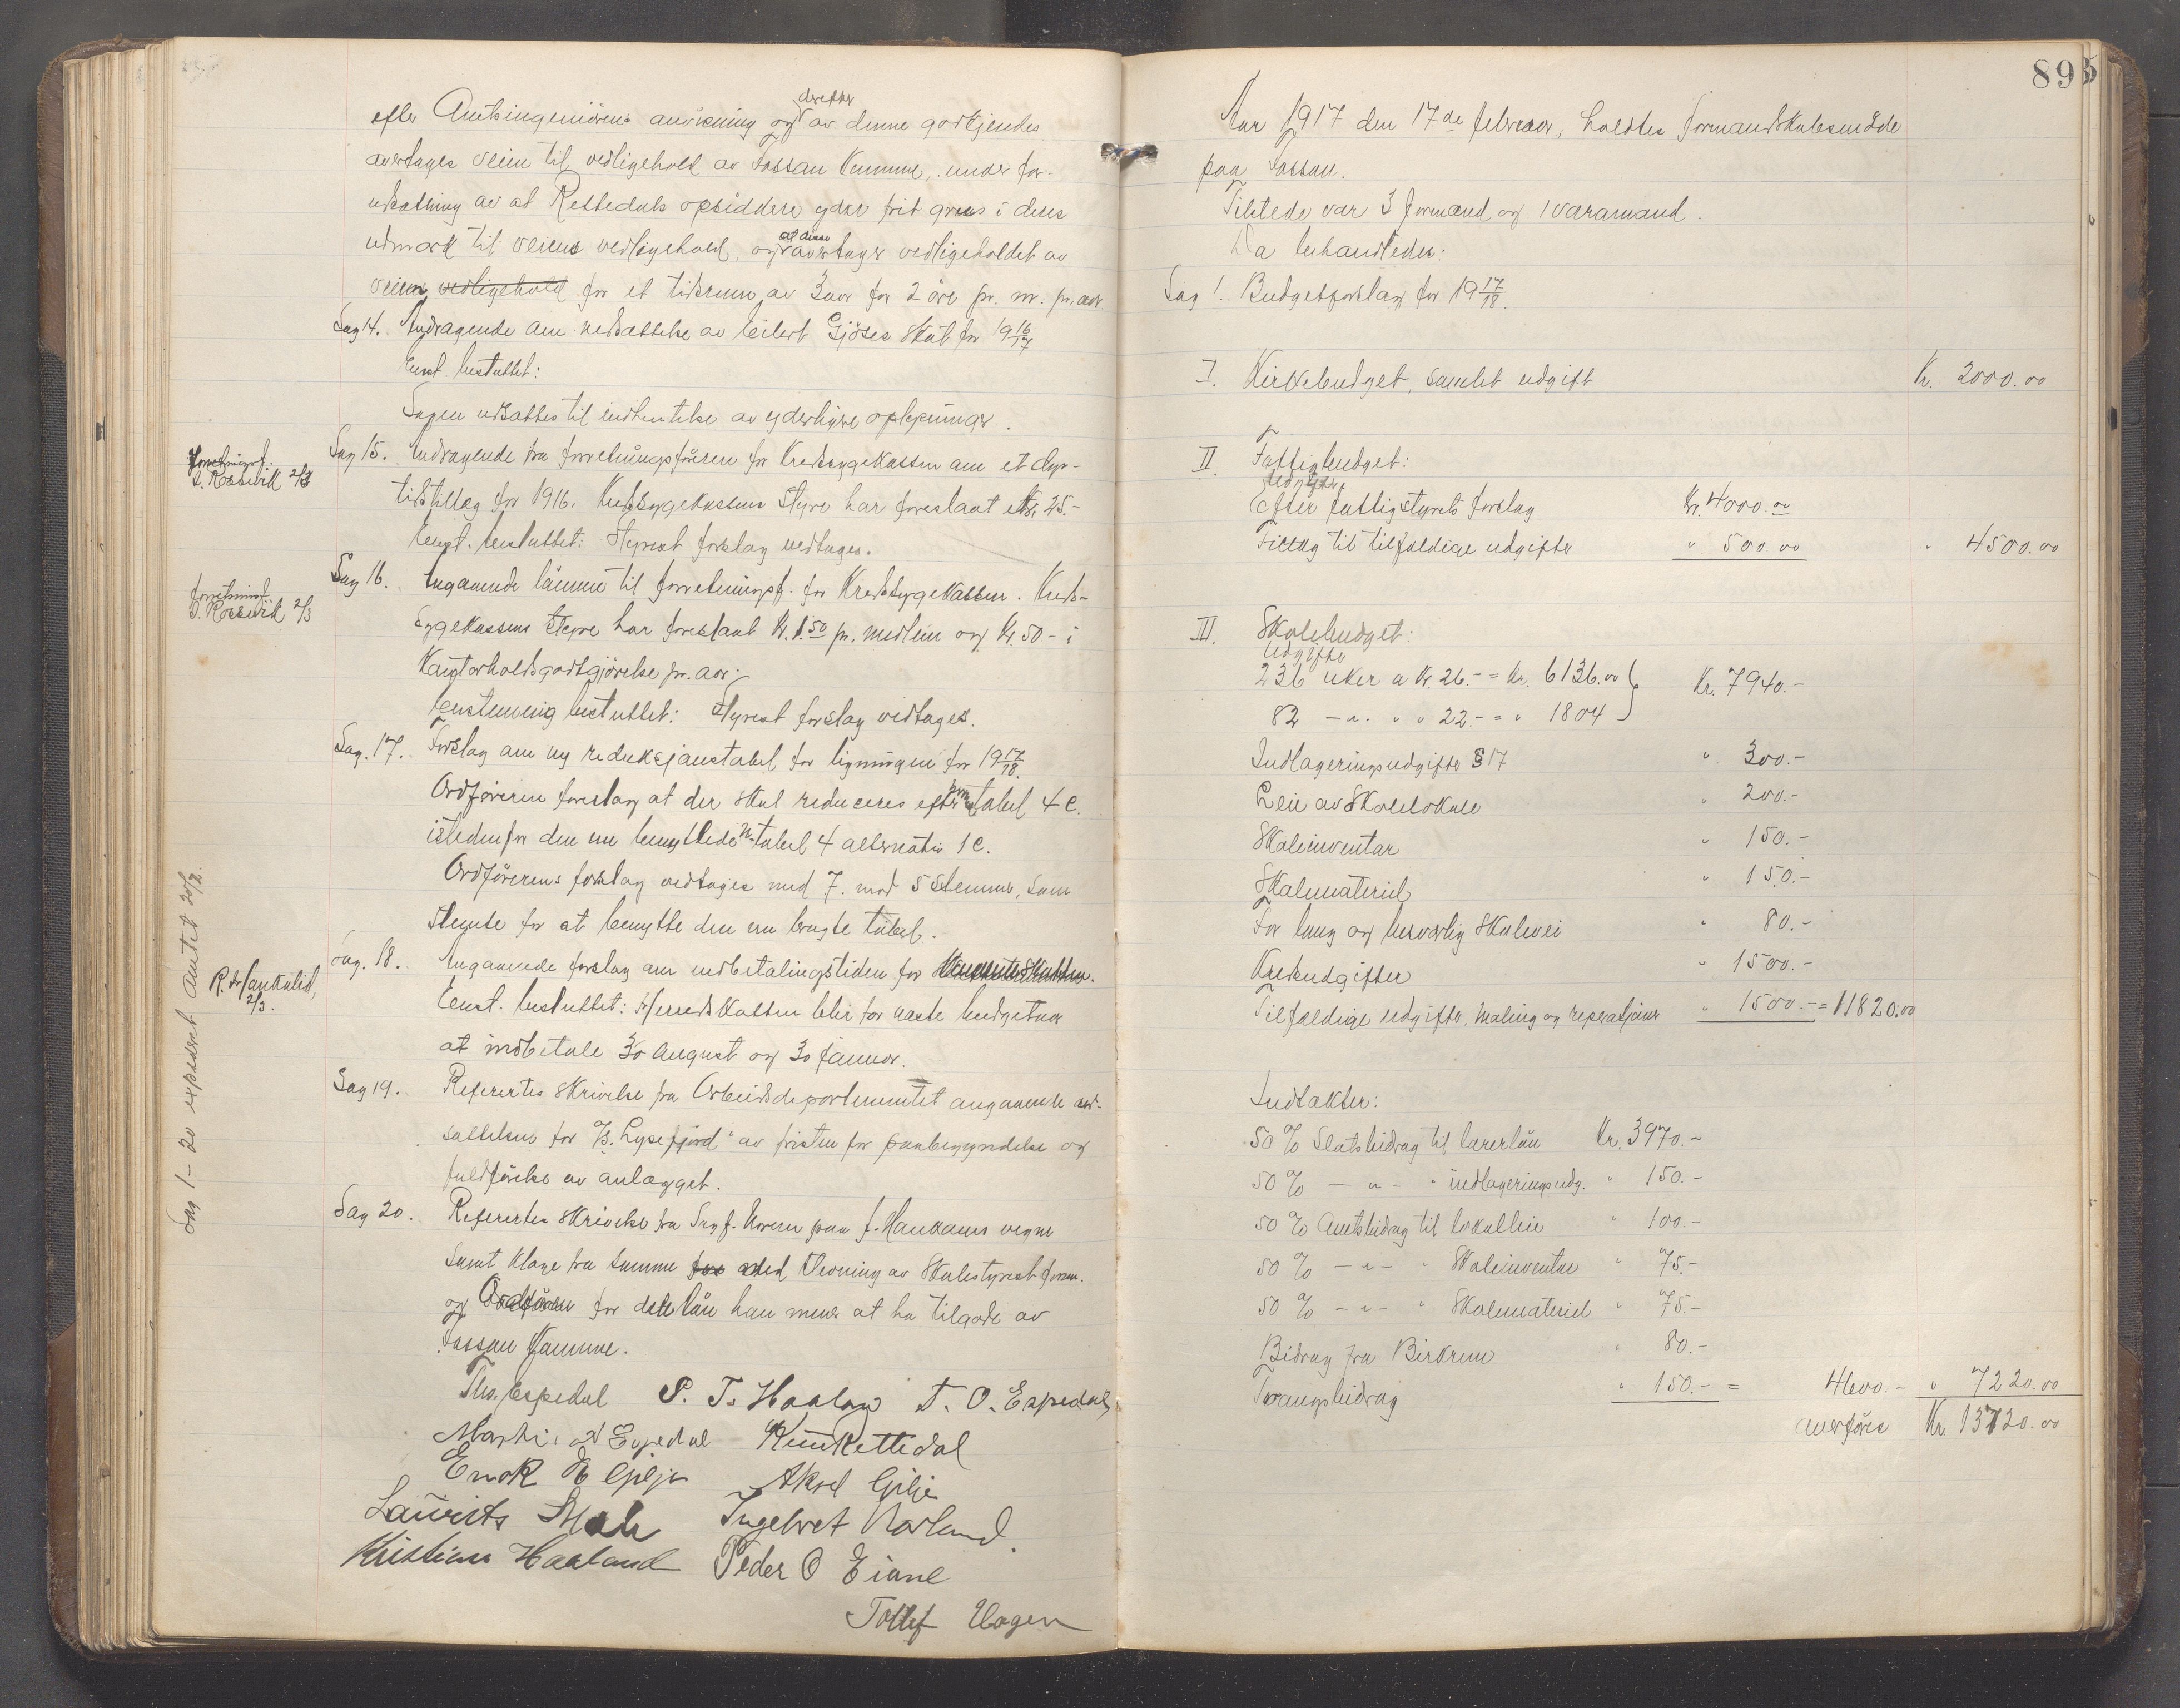 efter Amtsingeniörens anvisning og derefter av denne godkjendes
overtages veien til vedligehold av Fossan Kommune, under for-
udsætning av at Rettedals opsiddere yder frit grus i deres
udmark til veiens vedligehold, og at disse overtager vedligeholdet av
veien vedligehold for et tidsrum av 3 aar for 2 öre pr. m. pr. aar.
Sag 14. Andragende om nedsættelse av Eilert Gjöses skat for 19 16/17
Enst. besluttet:
Sagen udsættes til indhentelse av yderligere oplysninger.
Forretningsf. S. Rossavik 2/3
Sag 15. Andragende fra forretningsföreren for Kredssygekassen om et dyr-
tidstillæg for 1916. Kredssygekassens styre har foreslaat kr. 25.-
Enst. besluttet: Styrets forslag vedtages.
forretningsf. S. Rossavik 2/3
Sag 16. Angaaende lönnen til forretningsf. for Kredssygekassen. Kreds-
sygekassens styre har foreslaat Kr. 1.50 pr. medlem og Kr. 50.- i
Kontorholdsgodtgjörelse pr. aar.
Enstemmig besluttet: Styrets forslag vedtages.
Sag. 17. Forslag om ny reduksjonstabel for ligningen for 19 17/18.
Ordföreren foreslog at der skal reduceres efter tabel 4 C.
istedenfor den nu benyttede tabel 4 alternativ 1 C.
Ordförerens forslag vedtages med 7. mod 5 stemmer, som
stemte for at benytte den nu brugte tabel.
2/3.
Sag. 18. Angaaende forslag om indbetalingstiden for
Enst. besluttet: Herredskatten blir for næste budgetaar
at indbetale 30 August og 30 Januar.
Sag 19. Referertes skrivelse fra Arbeidsdepartementet angaaende ud-
sættelse for "A/S. Lysefjord" av fristen for paabegyndelse og
fuldförelse av anlægget.
Sag 20. Referertes skrivelse fra Sagf. paa J. Haukaas vegne
samt klage fra samme med stevning av Skolestyrets form.
og Ordförer for den lön han mener at ha tilgode av
Fossan Kommune.
Tho. Espedal P. T. Haaland T. O. Espedal
Martin Espedal Rettedal
Enok E Gilje Aksel Gilje
Laurits Mæle Ingebret Norland.
Kristian Haaland Peder O Eiane
Tollef Hagen
Sag 1 - 20 expedert Amtet 20/2.
89
Aar 1917 den 17de februar, holdtes formandskabsmöde
paa Fossan.
Tilstede var 3 formænd og 1 varamand.
Da behandledes:
Sag 1. Budgetforslag for 19 17/18.
I. Kirkebudget, samlet udgift Kr. 2000.00
II. Fattigbudget:
Udgifter.
Efter fattigstyrets forslag Kr. 4000.00
Tillæg til tilfældige udgifter " 500.00 " 4500.00
III. Skolebudget:
Udgifter
236 uker a Kr. 26.- = Kr. 6136.00 } Kr. 7940.-
82 - " - " " 22.- = " 1804
Indlageringsudgifter § 17 " 300.-
Leie av Skolelokale " 200.-
Skoleinventar " 150.-
Skolemateriel " 150.-
For lang og besværlig Skolevei " 80.-
Kredsudgifter " 1500.-
Tilfældige udgifter, maling og reperasjoner " 1500.- = 11820.00
Indtækter:
50 % Statsbidrag til lærerlön Kr. 3970.-
50 % - " - " indlageringsudg. " 150.-
50 % Amtsbidrag til lokalleie " 100.-
50 % - " - " Skoleinventar " 75.-
50 % - " - " Skolemateriel " 75.-
Bidrag fra Birkrem " 80.-
Tvangsbidrag " 150.- = 4600.- " 7220.00
overföres Kr. 13720.00